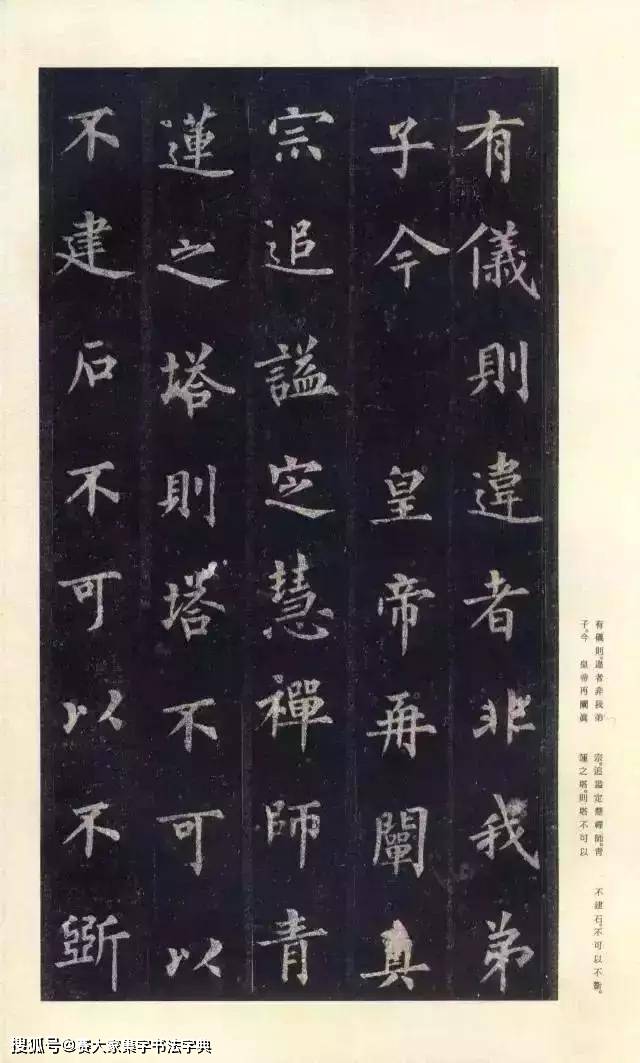 有儀則違者非我弟
子今 皇帝再闡真
宗追謚定慧禪師青
蓮之塔則塔不可以
不建石不可以不斲
有儀則。違者非我弟
子。今 皇帝再闡眞
宗。追謚定慧禪師。青
蓮之塔。則塔不可以
不建。石。不可以不斲。
搜狐号@赛大家集字书法字典